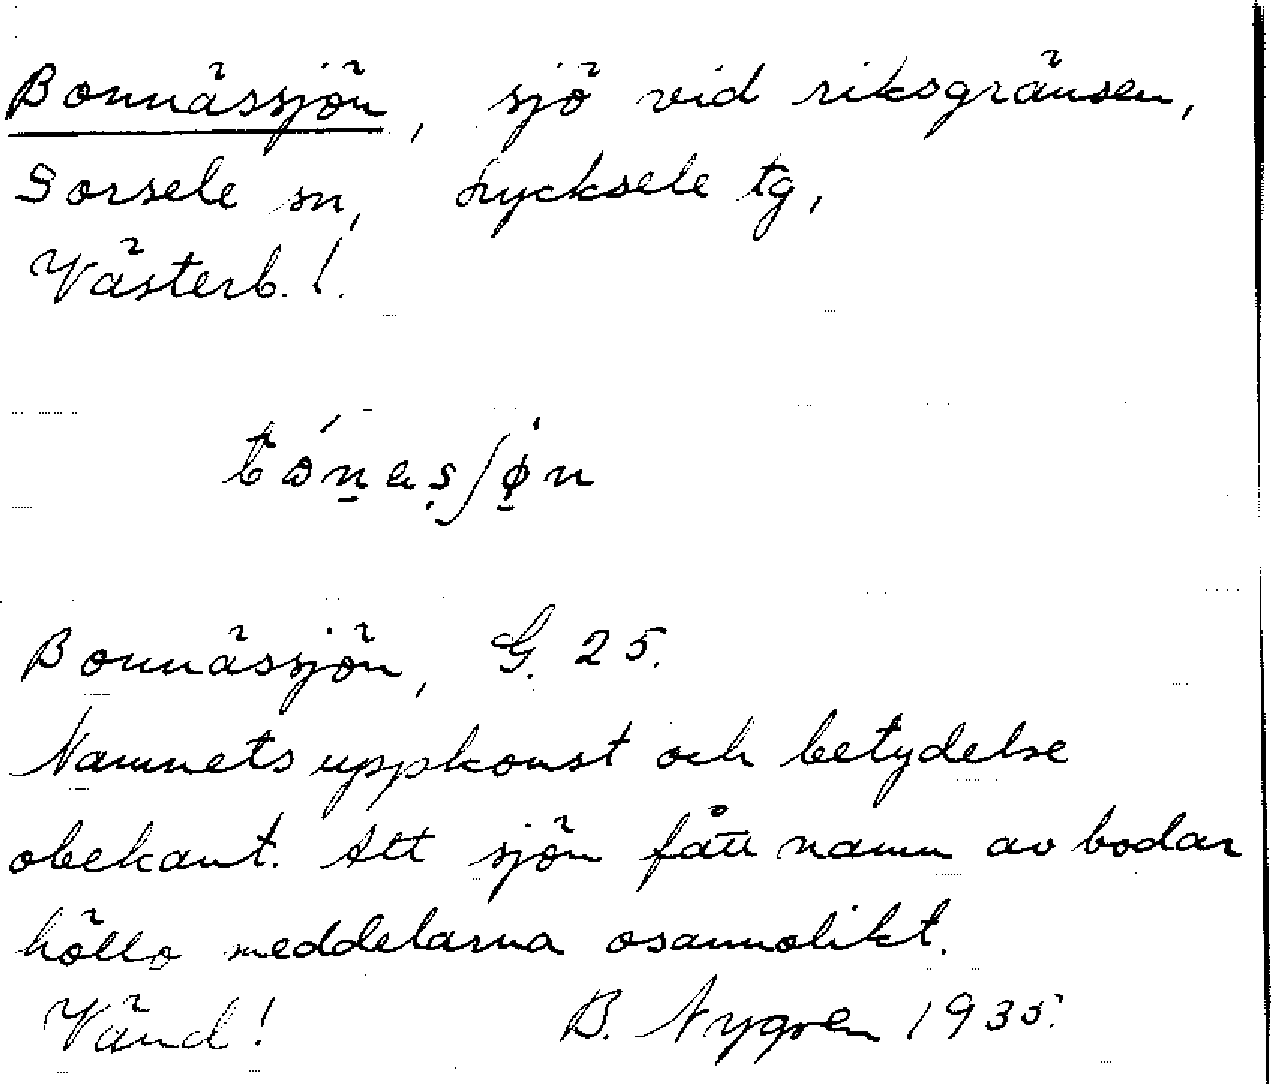 Bonnässjön, sjö vid riksgränsen,
Sorsele sn, Lycksele tg,
Västerb. l.
Bonnässjön, G. 25.
Namnets uppkomst och betydelse
obekant. Att sjön fått namn av bodar
höllo meddelarna osannolikt.
Vänd! B. Nygren 1935.